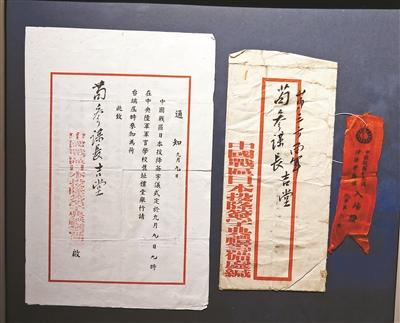 通知
中國戰區日本投降簽字儀式定於九月九日九時
在中央陸軍軍官學校舊址禮堂舉行請
台端屆時參加為荷
此致
苟參謀長吉堂
中國戰區日本投降簽字典禮籌備處 啟
苟參謀長吉堂
中國戰區日本投降簽字典禮籌備處緘